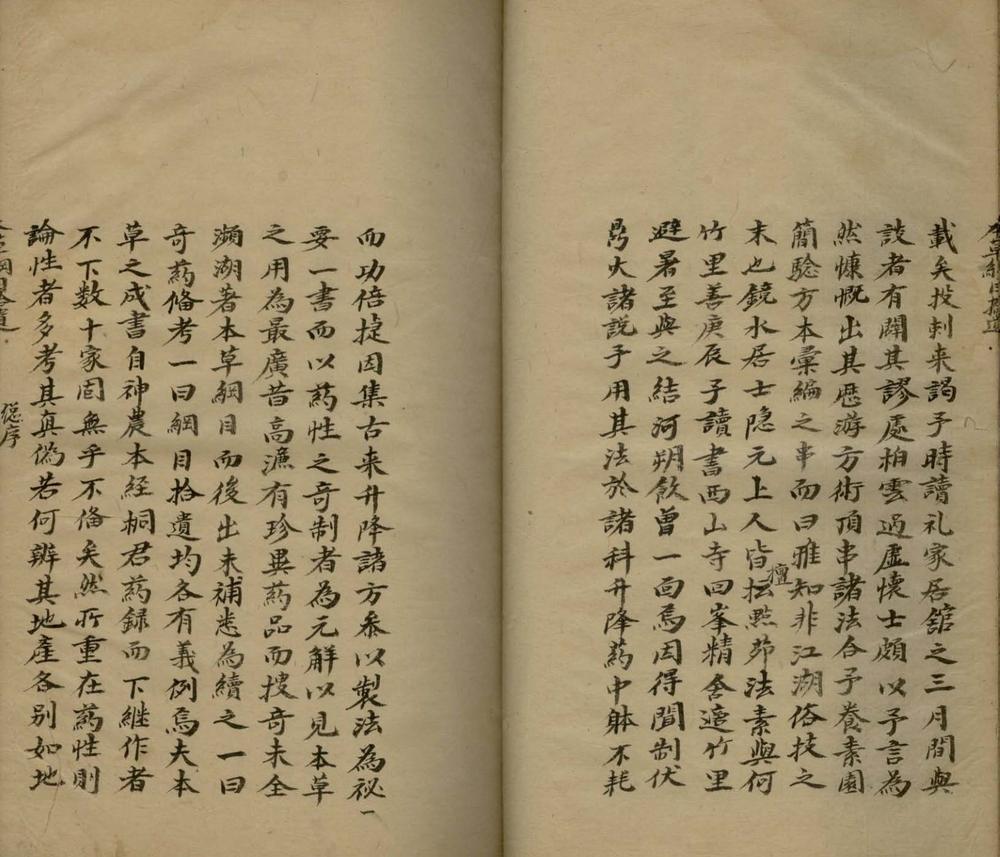 本草綱目拾遺
載矣投刺来謁予時讀礼家居舘之三月間與
談者有闢其謬處栢雲過虛懐士頗以予言為
然慷慨出其歴游方術頂串諸法合予養素園
簡驗方本彙編之串而曰雅知非江湖俗技之
末也鏡水居士隐元上人皆擅㸃茆法素與何
竹里善庚辰予讀書西山寺回峯精舍適竹里
避暑至與之結河朔飲曾一囬焉因得聞制伏
鼎火諸説予用其法於諸科升降葯中躰不耗
而功倍捷因集古来升降諸方叅以製法為祕一
要一書而以葯性之奇制者為元解以見本草
之用為最廣昔高濂有珍異葯品而搜奇未全
瀕湖著本草綱目而後出未補悉為續之一曰
奇葯俻考一曰綱目拾遺均各有義例焉夫本
草之成書自神農本経桐君葯録而下継作者
不下数十家固無乎不俻矣然所重在葯性則
論性者多考其真偽若何辨其地產各别如地
本草綱目拾遺 総序